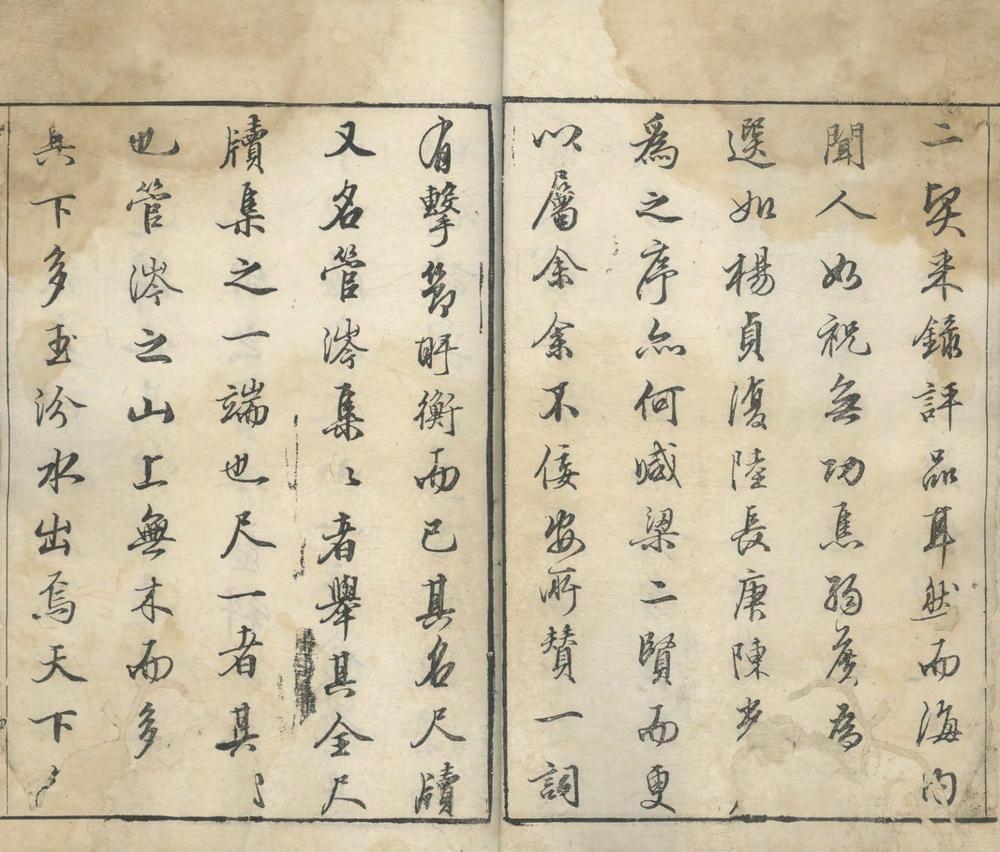 二契來錄評品耳然而海內
聞人如祝無功焦弱侯為
選如楊貞復陸長庚陳
為之序亦何減梁二賢而更
以屬余余不佞安所贊一詞
有擊節盱衡而已其名尺牘
又名管涔集〻者舉其全尺
牘集之一端也尺一者其
也管涔之山上無木而多
其下多玉汾水出焉天下